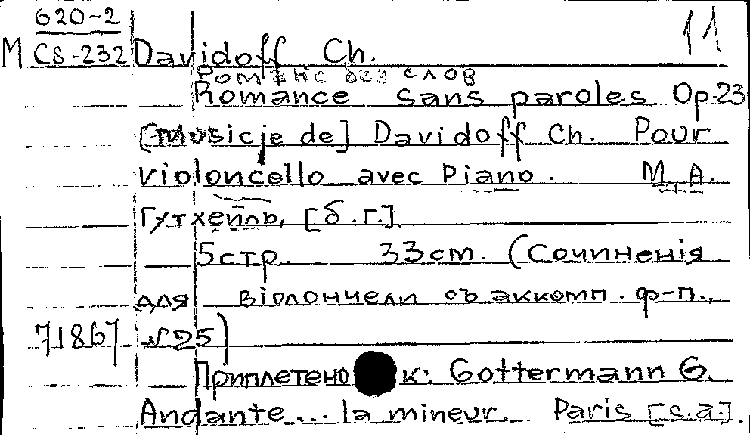 620-2 11
М CS-232 Davidoff Ch.
Романс без слов
Romance sans paroles Op.23
[Musicje de] Davidoff Ch. Pour
violoncello avec Piano. М. А.
Гутхейль, [б.г.].
5стр. 33cm. (Сочиненія
для віолончели съ аккомп. ф-п.,
71867 №25)
Приплетено к: Gottermann G.
Andante... la mineur. Paris [s.a].